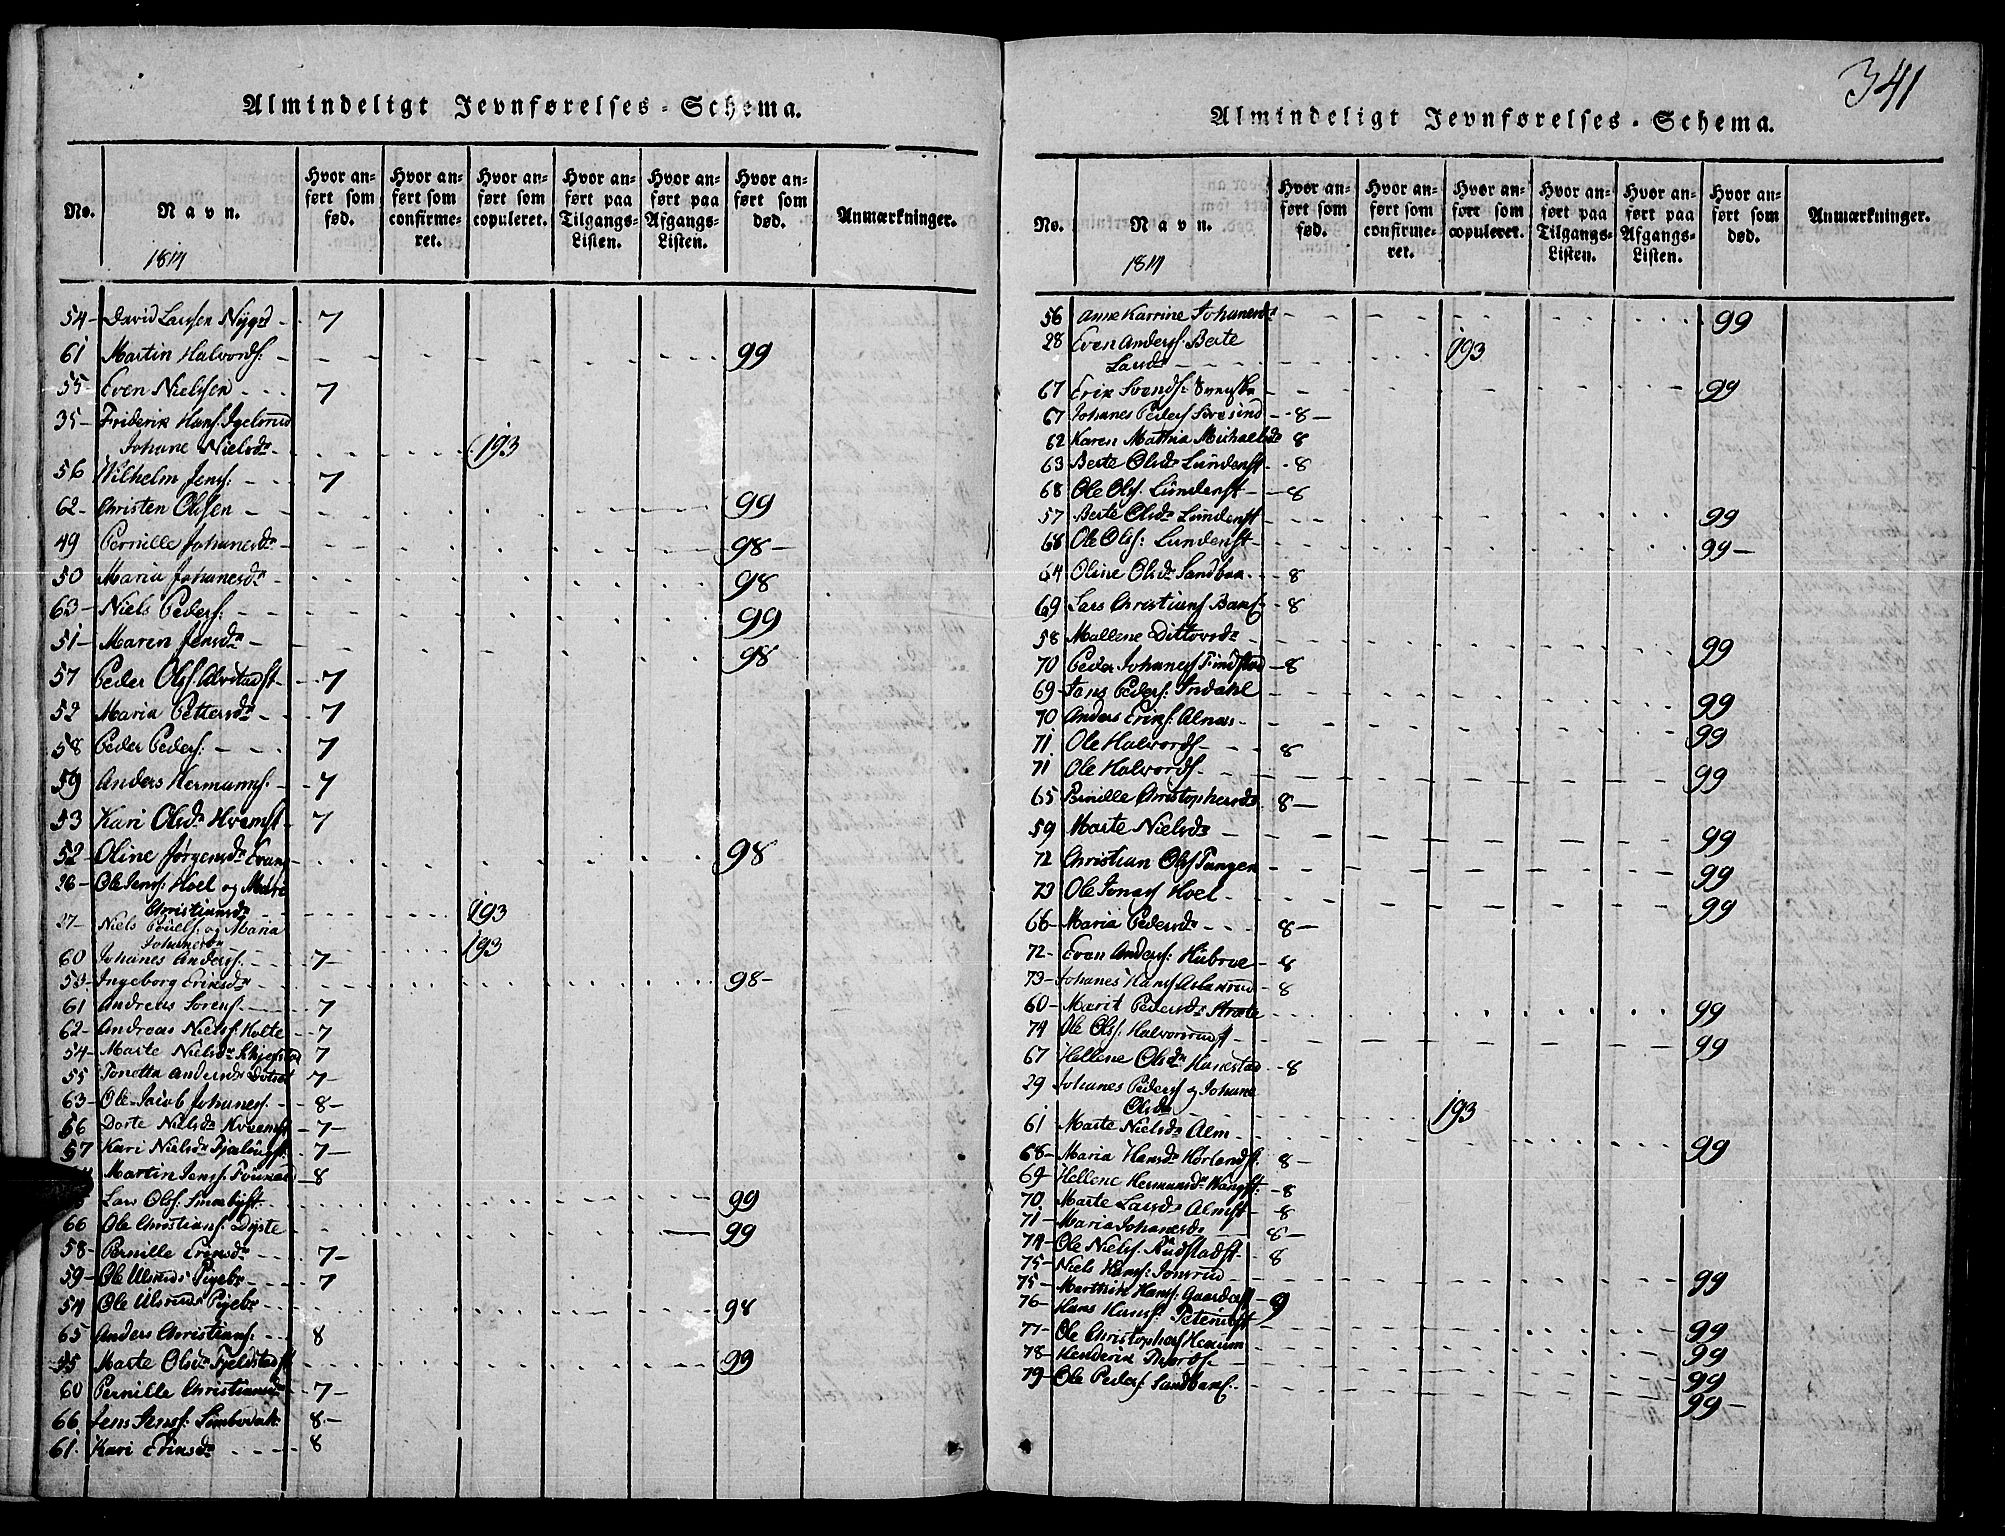 341
Almindeligt Jevnførelses-Schema.
No.
Navn.
1814
Hvor anført som fød.
Hvor anført som confirmeret.
Hvor anført som copuleret.
Hvor anført paa Tilgangs-Listen.
Hvor anført paa Afgangs-Listen.
Hvor anført som død.
Anmærkninger.
54 - David Larssen Nygrd - 7
61 Martin Halvords: - 99
55 - Even Nielssen - 7
35 - Friderik Hans:
Johane Nielsdr - 193
56 - Wilhelm Jens: - 7
62 - Christen Olssen - 99
49 Pernille Johanesdr - 98 -
50 Maria Johanesdr - 98
63 - Niels Peders: - 99
51 - Maren Jensdr - 98
57 Peder Ols: - 7
52 - Maria Pettersdr - 7
58 Peder Peders: - 7
59 Anders Hermans: - 7
53 Kari Olsdr Hvemst - 7
52 - Oline Jørgensdr Evang - 98
26 - Ole Jens: Hoel og Mari
Christiansdr - 193
27 - Niels Pouels: og Maria
Johanesdr - 193
60 Johanes Anders: - 7 -
53 - Ingeborg Eriksdr - 98 -
61 Andreas Sørens: - 7
62 - Andreas Niels: Holte - 7
54 - Marte Nielsdr - 7
55 Tonetta Andersdr - 7 -
63 - Ole Jacob Johanes: - 8 -
56 Dorte Nielsdr Kvemst - 7 -
57 Kari Nielsdr - 7 -
Martin Jens: - 8
Lars Ols: Smebyst - 99
66 Ole Christians: Dyste - 99
58 - Pernille Eriksdr - 7 -
59 - Ole Ulsruds Pigebr - 7
54 Ole Ulsruds Pigebr - 98
65 Anders Christians: - 8
55 Marte Olsdr Fjeldstadst - 99
60 Pernille Christiansdr - 7 -
66 Jens Jens: - 8 -
61 Kari Eriksdr - 8
Almindeligt Jevnførelses-Schema.
No.
Navn.
1814
Hvor anført som fød.
Hvor anført som confirmeret.
Hvor anført som copuleret.
Hvor anført paa Tilgangs-Listen.
Hvor anført paa Afgangs-Listen.
Hvor anført som død.
Anmærkninger.
56 Anne Karrine Johanesdr - 99
28 Even Anders: Berte
Larsdr - 193
67 Erik Svends: - 99
67 Johanes Peders: - 8 -
62 Karen Mathia Michaelsdr 8
63 Berte Olsdr Lundenst - 8
68 Ole Ols: Lundenst - 8
57 Berte Olsdr Lundenst - 99
68 Ole Ols: Lundenst - 99 -
64 Oline Olsdr Sandbaa - 8
69 Lars Christians: - 8
58 Mallene Dittovsdr - 99
70 Peder Johanes: Findstad - 8
69 - Jans Peders: Indahl - 99
70 Anders Eriks: Alnæs - 99
71 Ole Halvords: - 8
71 Ole Halvords: - 99
65 Pernille Christophersdr 8 -
59 Marte Nielsdr - 99
72 Christian Ols: Tangen - 99
73 Ole Jonas: Hoel - 99
66 - Maria Pedersdr - 8 -
72 - Even Anders: Hubroe - 8
73 - Johanes Hans: - 8
60 - Marit Pedersdr - 99
74 Ole Ols: Halvorsrudst - 99
67 Hellene Olsdr Hanestad - 8
29 Johanes Peders: og Johane
Olsdr - 193
61 Marte Nielsdr Alm - 99
68 - Maria Hansdr - 8 -
69 Hellene Hermansdr Wangst: - 8
70 Marte Larsdr Almst - 8
71 - Maria Johanesdr - 8 -
74 Ole Niels: Rudstadst - 8
75 - Niels Hans: Jonsrud - 99
75 - Marthin Hans: Gaarderst - 9
76 - Hans Hans: - 99
77 - Ole Christophers: Hexum - 99
78 - Henderik - 99
79 - Ole Peders: Sandbaas: - 99 -